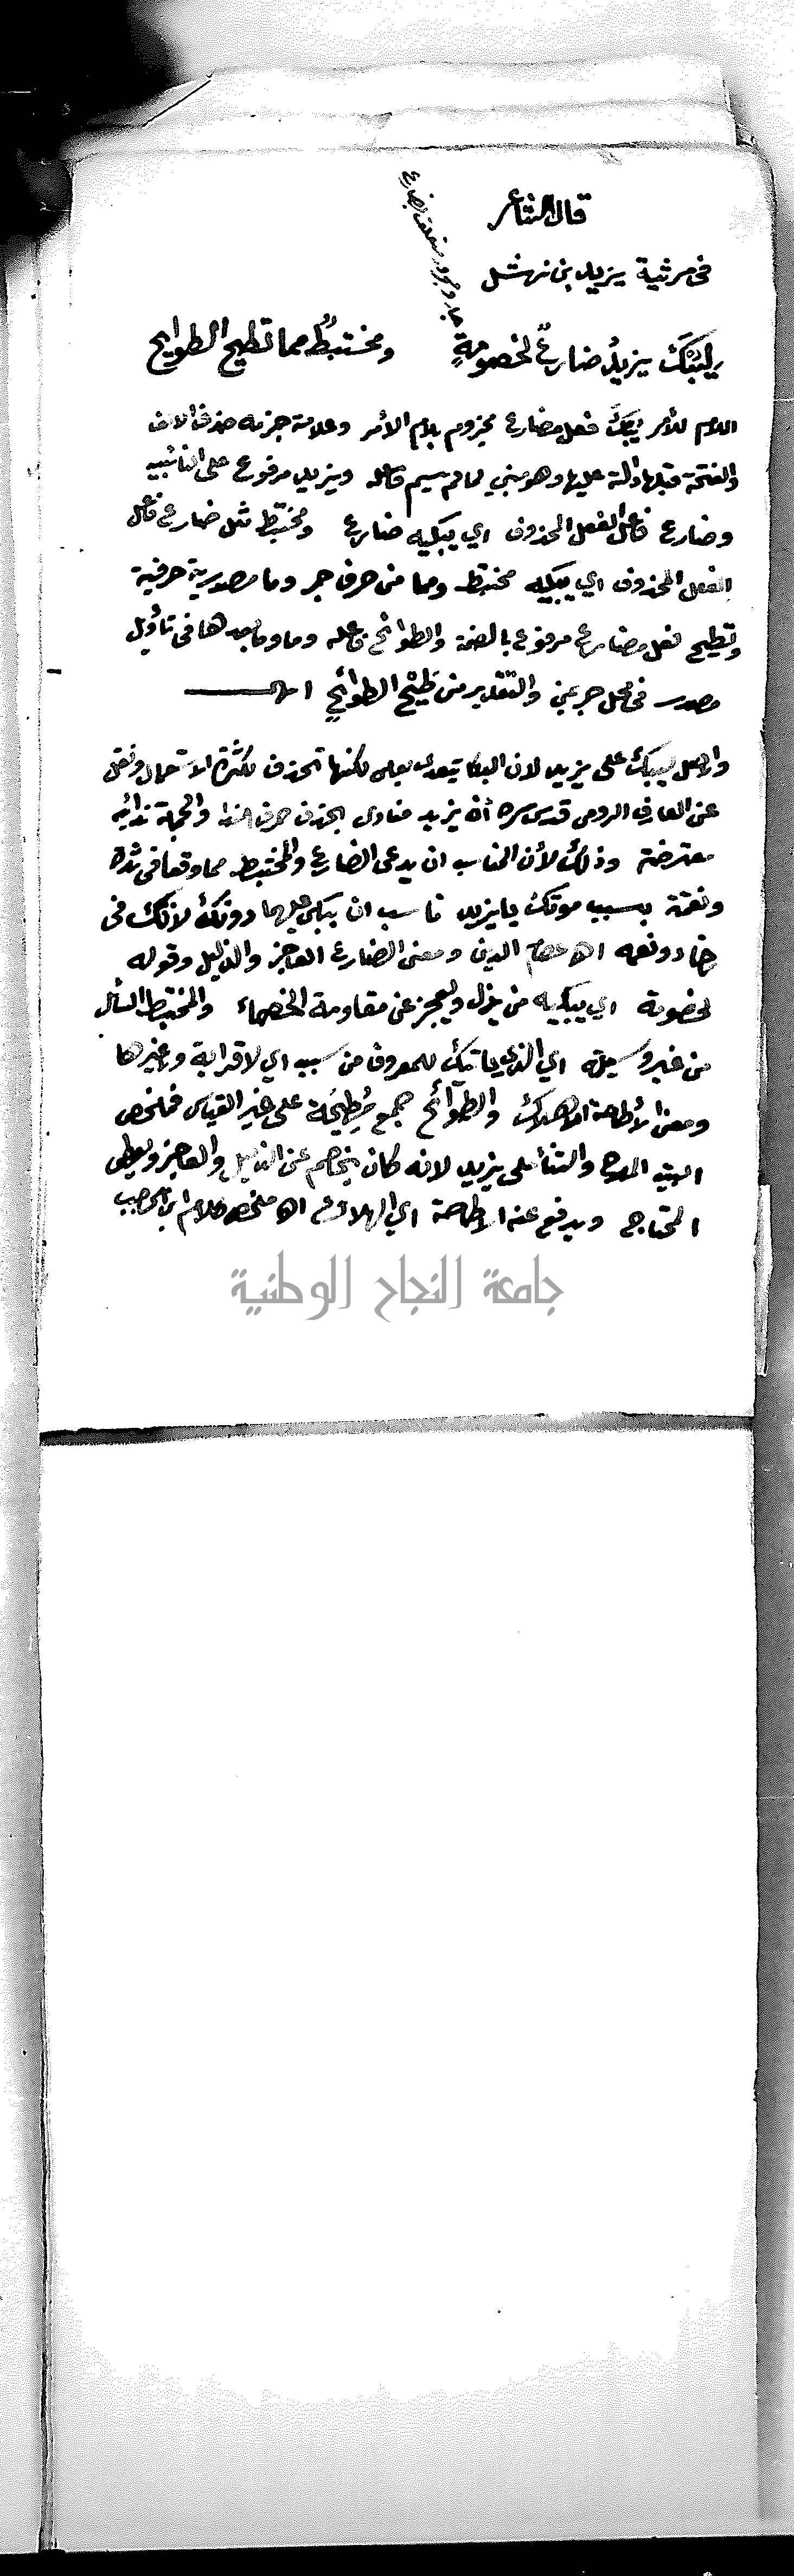 قال الشاعر
في مرثية يزيد بن نهشل
جار ومجرور متعلق بضارع
ليُبْكَ يزيدُ ضارعٌ لخصومةٍ ومختبطٌ مما تطيح الطوايح
اللام للأمر يبك فعل مضارع مجزوم بلام الأمر وعلامة جزمه حذف الالف
والفتحة قبلها دالة عليها وهو مبني لما لم يسم فاعله ويزيد مرفوع على النائبيه
وضارع فاعل الفعل المحذوف اي يبكيه ضارع ومختبط مثل ضارع فاعل
الفعل المحذوف اي يبكيه مختبط ومما من حرف جر وما مصدرية حرفية
وتطيح فعل مضارع مرفوع بالضمة والطوائح فاعله وما وما بعدها في تأويل
مصدر في محل جر بمن والتقدير من طَيْحِ الطوائحِ اهـ
والاصل ليبك على يزيد لان البكا يتعدى بعلى لكنها تحذف لكثرة الاستعمال ونقل
عن العارف الرومي قدس سره أن يزيد منادى بحذف حرف الندا والجملة ندائيه
معترضة وذلك لأن المناسب ان يدعى الضارع والمختبط مما وقعا في شدة
ونقمة بسبب موتك يا يزيد ناسب ان يبكى عليهما دونك لانك في
ونعمه اهـ عصام الدين ومعنى الضارع العاجز والذليل وقوله
لخصومة اي يبكيه من يذل ويعجز عن مقاومة الخصماء والمختبط السائل
من غير وسيلة اي الذي ياتيك للمعروف من سبب اي لا قرابة وغيرها
ومعنى الأطاحة الاهلاك والطوآئح جمع مُطِيْحَة على غير القياس فملخص
البيت المدح والثنا على يزيد لانه كان يخاصم عن الذليل والعاجز ويعطي
المحتاج ويدفع عنه الاطاحة اي الهلاك اهـ ملخص كلام ابن الحاجب
جامعة النجاح الوطنية